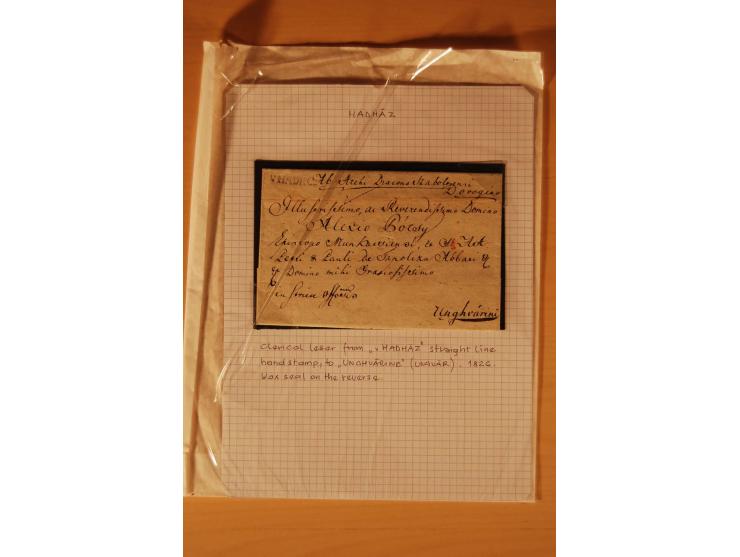 HADHÁZ
V.HADH
Ab Archi Diacono Szabolcsensi
Dorogino
Illustrissimo, ac Reverendissimo Domino
Alexio Pócsy
Episcopo Munkacsiensi, et
Petri & Pauli de Tapolcza Abbati &
& Domino mihi Gratiosissimo
Unghvárini
clerical leser from „v HADHÁZ" straight line
handstamp, to „UNGHVÁRINE" (UNGVÁR). 1826.
Wax seal on the reverse.